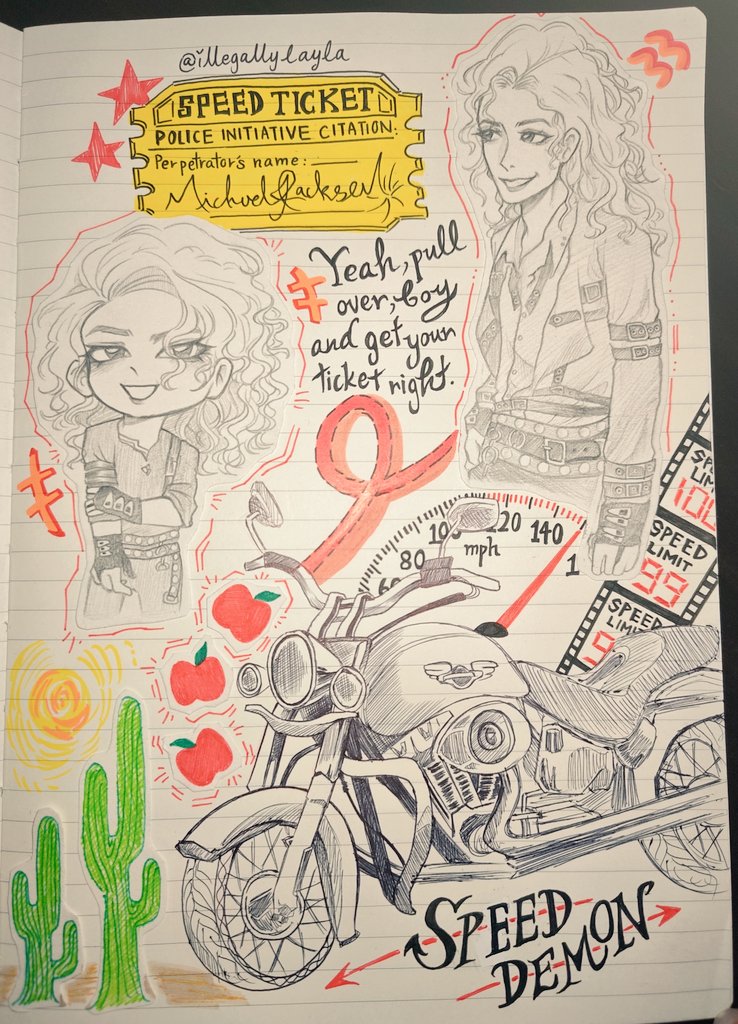 @illegallylayla
SPEED TICKET
POLICE INITIATIVE CITATION:
Perpetrator's name:
Michael Jackson
Yeah, pull
over, boy
and get your
ticket right.
80
100
120
140
mph
1
SPEED
LIMIT
99
SPEED
SPEED DEMON